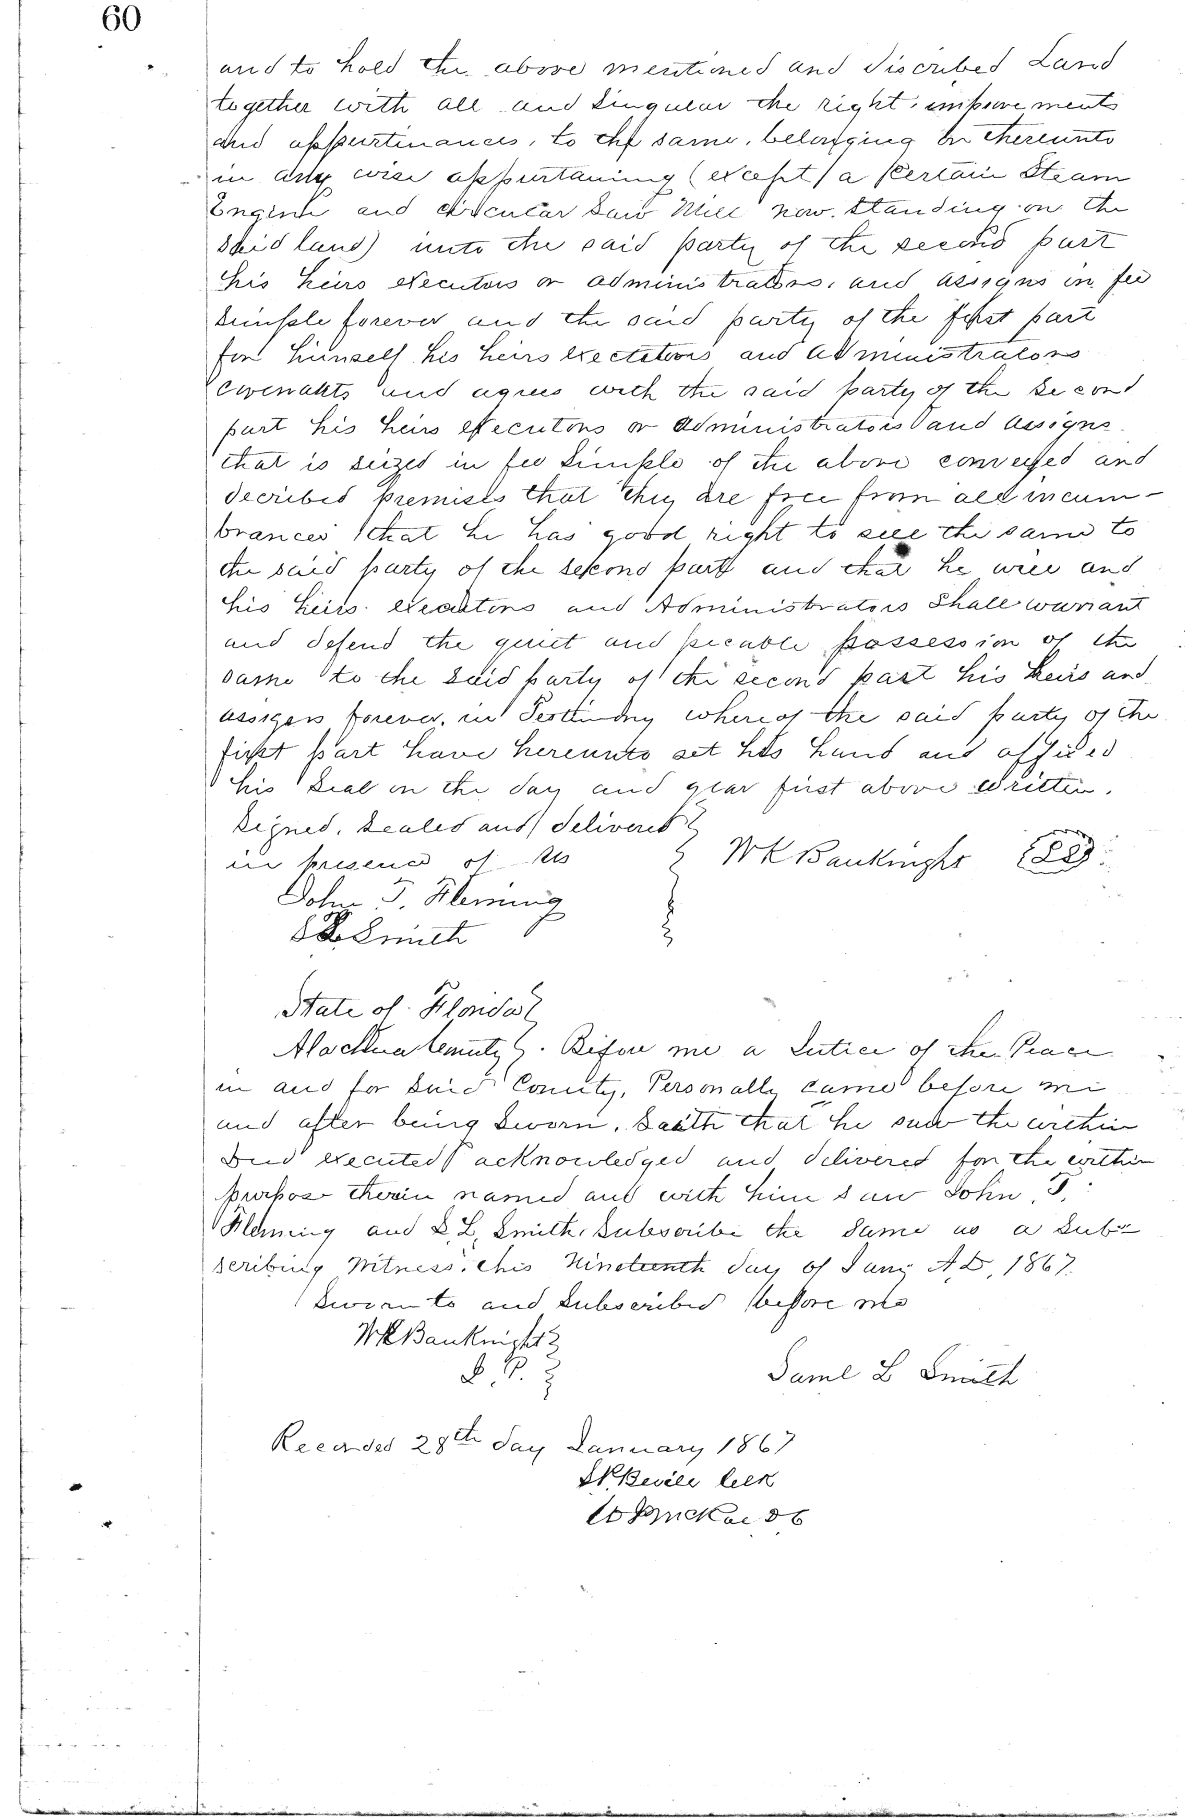 60
and to hold the above mentioned and discribed Land
together with all and Singular the right, improvements
and appurtinances, to the same, belonging or thereunto
in any wise appurtaining (except a certain Steam
Engine and circular Saw Mill now Standing on the
Said land) unto the said party of the second part
his heirs executors or administrators, and assigns in fee
Simple forever and the said party of the first part
for himself his heirs executors and administrators
covenants and agrees with the said party of the Second
part his heirs executors or administrators and assigns
that is seized in fee Simple of the above conveyed and
decribed premises that they are free from all incum-
brances that he has good right to sell the same to
the said party of the second part and that he will and
his heirs executors and Administrators Shall warrant
and defend the quiet and pecable possession of the
same to the said party of the second part his heirs and
assigns forever, in Testimony whereof the said party of the
first part have hereunto set his hand and affixed
his Seal on the day and year first above written.
Signed, Sealed and delivered
in presence of us
W K Bauknight
John T. Fleming
S L Smith
State of Florida
Alachua County. Before me a Justice of the Peace
in and for Said County, Personally came before me
and after being Sworn, Saith that he saw the within
Deed executed acknowledged and delivered for the within
purpose therein named and with him saw John T.
Fleming and S. L. Smith, Subscribe the Same as a Sub-
scribing Witness. this Nineteenth day of Jany A.D. 1867.
Sworn to and Subscribed before me
W K Bauknight
J. P.
Saml L Smith
Recorded 28th day January 1867
Clerk
D C